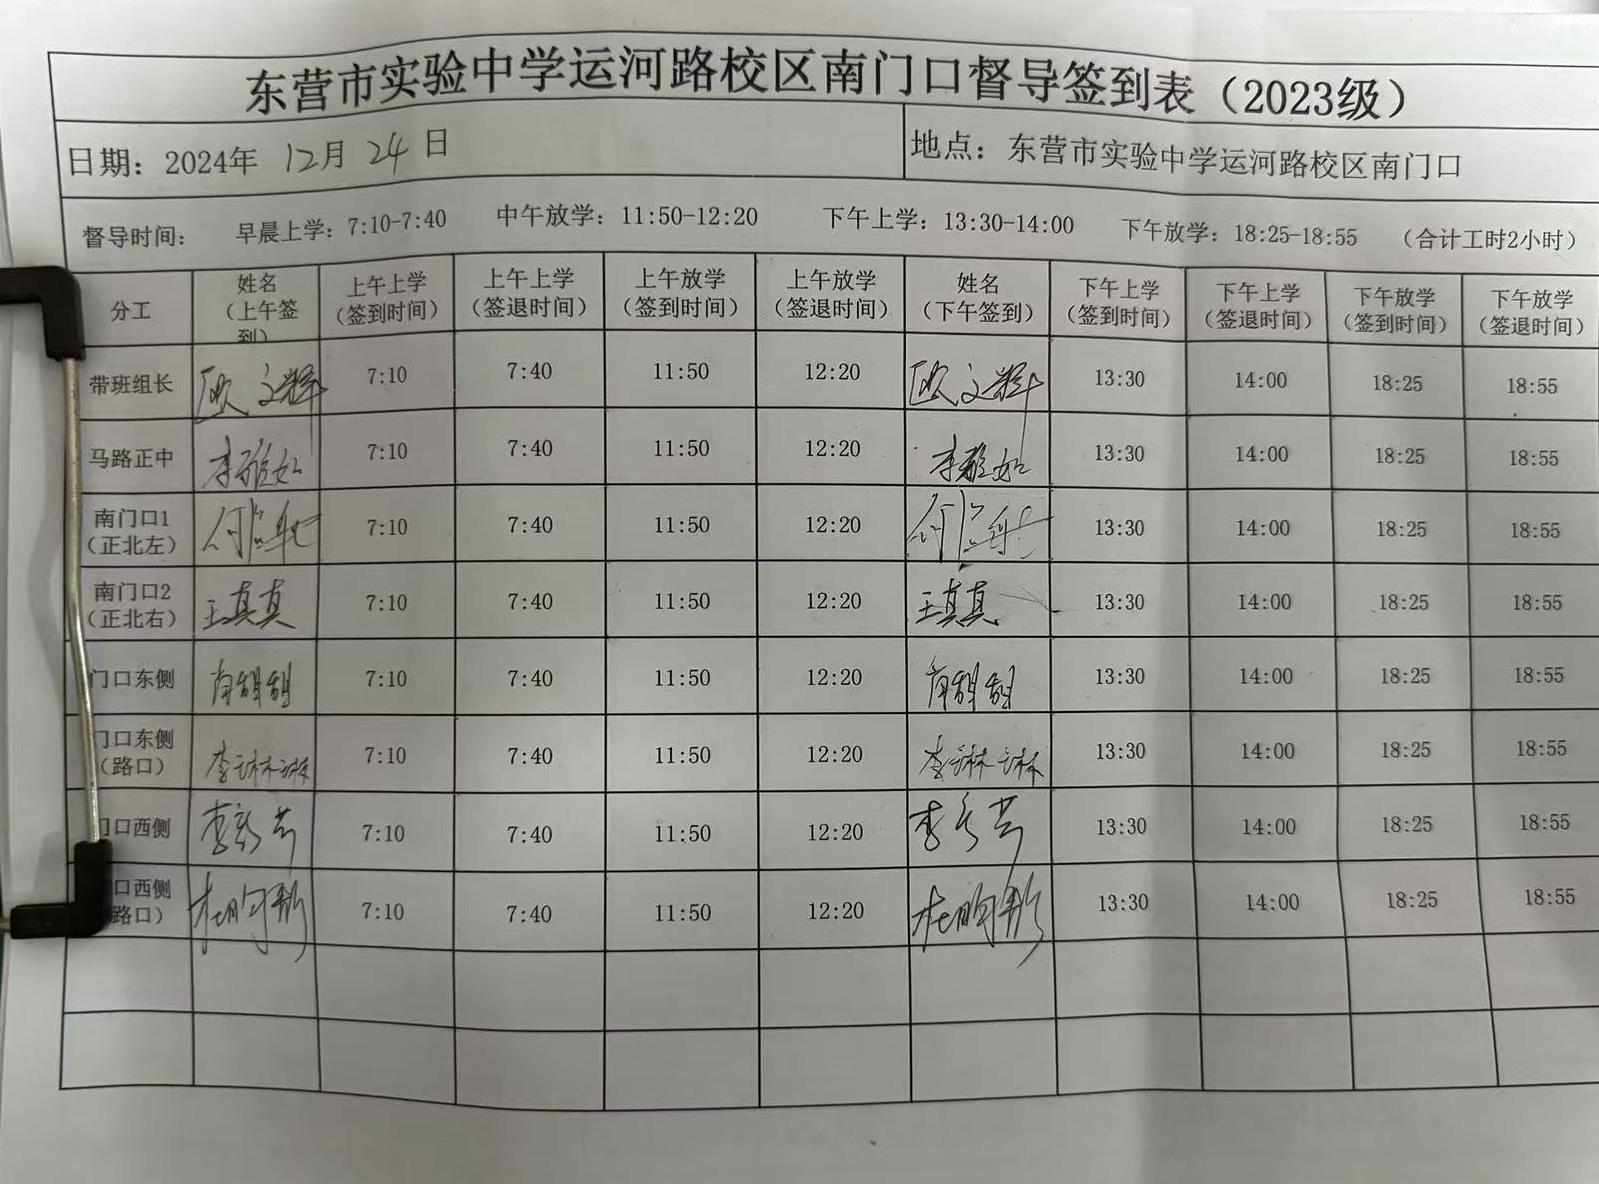 东营市实验中学运河路校区南门口督导签到表（2023级）
日期：2024年 12月 24 日 地点：东营市实验中学运河路校区南门口
督导时间： 早晨上学：7:10-7:40 中午放学：11:50-12:20 下午上学：13:30-14:00 下午放学：18:25-18:55 （合计工时2小时）
分工 姓名（上午签到） 上午上学（签到时间） 上午上学（签退时间） 上午放学（签到时间） 上午放学（签退时间） 姓名（下午签到） 下午上学（签到时间） 下午上学（签退时间） 下午放学（签到时间） 下午放学（签退时间）
带班组长 欧文辉 7:10 7:40 11:50 12:20 欧文辉 13:30 14:00 18:25 18:55
马路正中 李雅如 7:10 7:40 11:50 12:20 李雅如 13:30 14:00 18:25 18:55
南门口1（正北左） 7:10 7:40 11:50 12:20 13:30 14:00 18:25 18:55
南门口2（正北右） 王真真 7:10 7:40 11:50 12:20 王真真 13:30 14:00 18:25 18:55
门口东侧 7:10 7:40 11:50 12:20 13:30 14:00 18:25 18:55
门口东侧（路口） 李琳琳 7:10 7:40 11:50 12:20 李琳琳 13:30 14:00 18:25 18:55
门口西侧 7:10 7:40 11:50 12:20 13:30 14:00 18:25 18:55
口西侧路口） 7:10 7:40 11:50 12:20 13:30 14:00 18:25 18:55